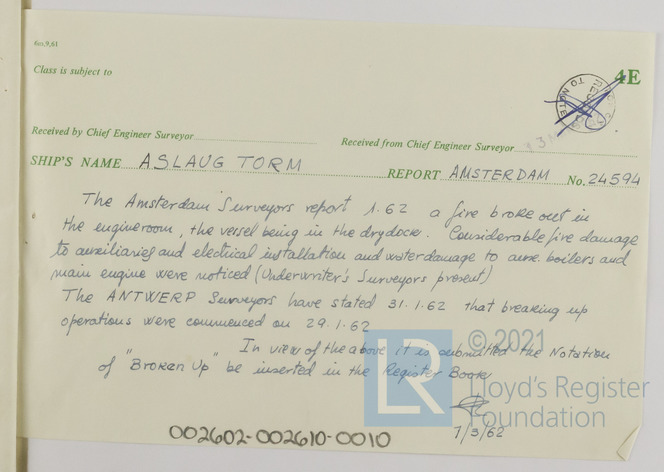 6m.9,61
4E
Class is subject to
TO NOTE
Received by Chief Engineer Surveyor
Received from Chief Engineer Surveyor
SHIP'S NAME ASLAUG TORM
REPORT AMSTERDAM No. 24594
The Amsterdam Surveyors report 1.62 a fire broke out in
the engineroom, the vessel being in the drydock. Considerable fire damage
to auxiliaries and electrical installation and waterdamage to aux. boilers and
main engine were noticed (Underwriter's Surveyors present)
The ANTWERP Surveyors have stated 31.1.62 that breaking up
operations were commenced on 29.1.62
In view of the above it is submitted the Notation
of "Broken Up" be inserted in the Register Book
7/3/62
002602-002610-0010
LR
© 2021
Lloyd's Register
Foundation